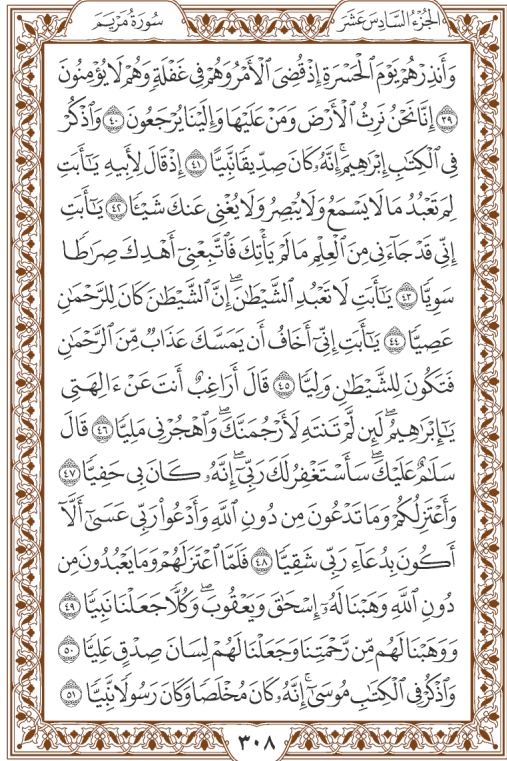 الجُزْءُ السَّادِسَ عَشَرَ
سُورَةُ مَرْيَمَ
وَأَنذِرْهُمْ يَوْمَ ٱلْحَسْرَةِ إِذْ قُضِيَ ٱلْأَمْرُ وَهُمْ فِي غَفْلَةٍ وَهُمْ لَا يُؤْمِنُونَ
٣٩ إِنَّا نَحْنُ نَرِثُ ٱلْأَرْضَ وَمَنْ عَلَيْهَا وَإِلَيْنَا يُرْجَعُونَ ٤٠ وَٱذْكُرْ
فِي ٱلْكِتَٰبِ إِبْرَٰهِيمَۚ إِنَّهُۥ كَانَ صِدِّيقًا نَّبِيًّا ٤١ إِذْ قَالَ لِأَبِيهِ يَٰٓأَبَتِ
لِمَ تَعْبُدُ مَا لَا يَسْمَعُ وَلَا يُبْصِرُ وَلَا يُغْنِي عَنكَ شَيْـًٔا ٤٢ يَٰٓأَبَتِ
إِنِّي قَدْ جَآءَنِي مِنَ ٱلْعِلْمِ مَا لَمْ يَأْتِكَ فَٱتَّبِعْنِيٓ أَهْدِكَ صِرَٰطًا
سَوِيًّا ٤٣ يَٰٓأَبَتِ لَا تَعْبُدِ ٱلشَّيْطَٰنَۖ إِنَّ ٱلشَّيْطَٰنَ كَانَ لِلرَّحْمَٰنِ
عَصِيًّا ٤٤ يَٰٓأَبَتِ إِنِّيٓ أَخَافُ أَن يَمَسَّكَ عَذَابٌ مِّنَ ٱلرَّحْمَٰنِ
فَتَكُونَ لِلشَّيْطَٰنِ وَلِيًّا ٤٥ قَالَ أَرَاغِبٌ أَنتَ عَنْ ءَالِهَتِي
يَٰٓإِبْرَٰهِيمُۖ لَئِن لَّمْ تَنتَهِ لَأَرْجُمَنَّكَۖ وَٱهْجُرْنِي مَلِيًّا ٤٦ قَالَ
سَلَٰمٌ عَلَيْكَۖ سَأَسْتَغْفِرُ لَكَ رَبِّيٓۖ إِنَّهُۥ كَانَ بِي حَفِيًّا ٤٧
وَأَعْتَزِلُكُمْ وَمَا تَدْعُونَ مِن دُونِ ٱللَّهِ وَأَدْعُوا۟ رَبِّي عَسَىٰٓ أَلَّآ
أَكُونَ بِدُعَآءِ رَبِّي شَقِيًّا ٤٨ فَلَمَّا ٱعْتَزَلَهُمْ وَمَا يَعْبُدُونَ مِن
دُونِ ٱللَّهِ وَهَبْنَا لَهُۥٓ إِسْحَٰقَ وَيَعْقُوبَۖ وَكُلًّا جَعَلْنَا نَبِيًّا ٤٩
وَوَهَبْنَا لَهُم مِّن رَّحْمَتِنَا وَجَعَلْنَا لَهُمْ لِسَانَ صِدْقٍ عَلِيًّا ٥٠
وَٱذْكُرْ فِي ٱلْكِتَٰبِ مُوسَىٰٓۚ إِنَّهُۥ كَانَ مُخْلَصًا وَكَانَ رَسُولًا نَّبِيًّا ٥١
٣٠٨